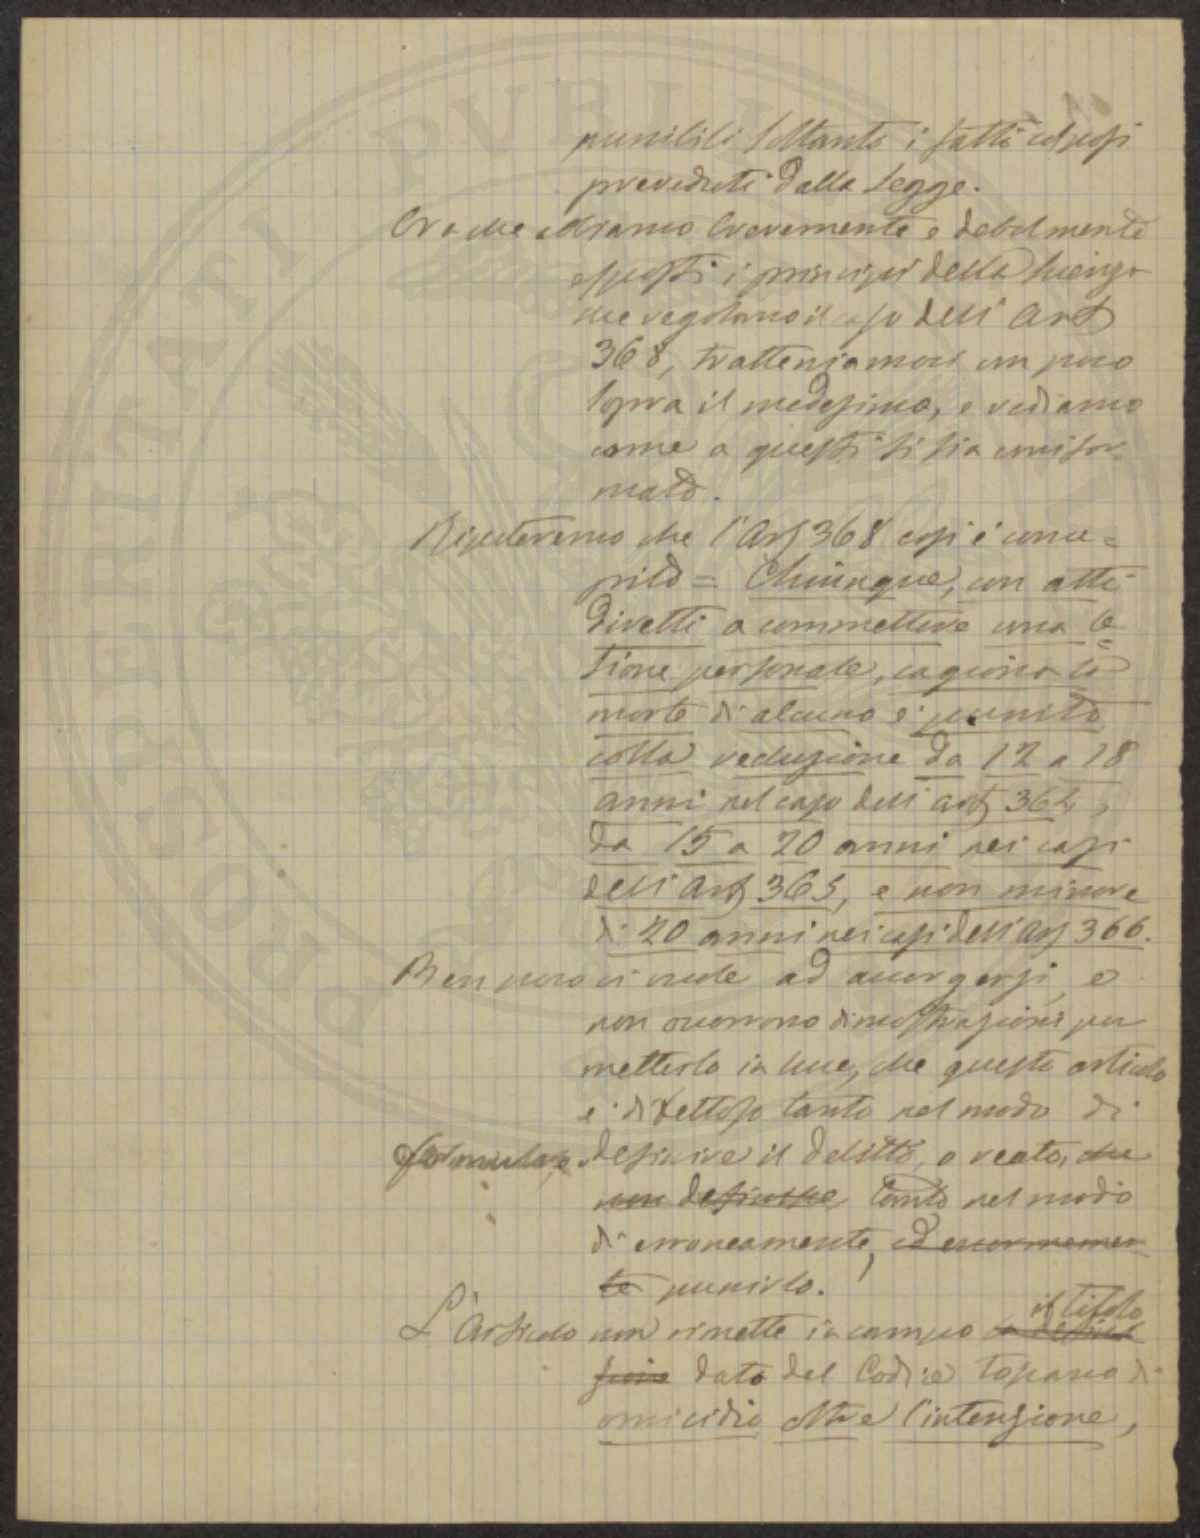 punibili soltanto i fatti colposi
preveduti dalla legge.
Ora che abbiamo brevemente e debolmente
esposti i principi della scienza
che regolano il caso dell'Art
368, tratteniamoci un poco
sopra il medesimo, e vediamo
come a questi si sia unifor
mato.
Ripeteremo che l'Art 368 così è conce=
pito = Chiunque, con atti
diretti a commettere una le
=
sione personale, cagiona la
morte di alcuno è punito
colla reclusione da 12 a 18
anni nel caso dell'art 364,
da 15 a 20 anni nei casi
dell'Art 365, e non minore
di 20 anni nei casi dell'Art 366.
Ben poco ci vuole ad accorgersi, e
non occorrono dimostrazioni per
metterlo in luce, che questo articolo
è difettoso tanto nel modo di
formulare, e definire il delitto, o reato, che
non definisce, tanto nel modo
di erroneamente, ed enormemen
te punirlo.
il titolo
L'Articolo non rimette in campo la defini
zione dato dal Codice Toscano di
omicidio oltre l'intenzione,
PROSPERITATI PUBLI